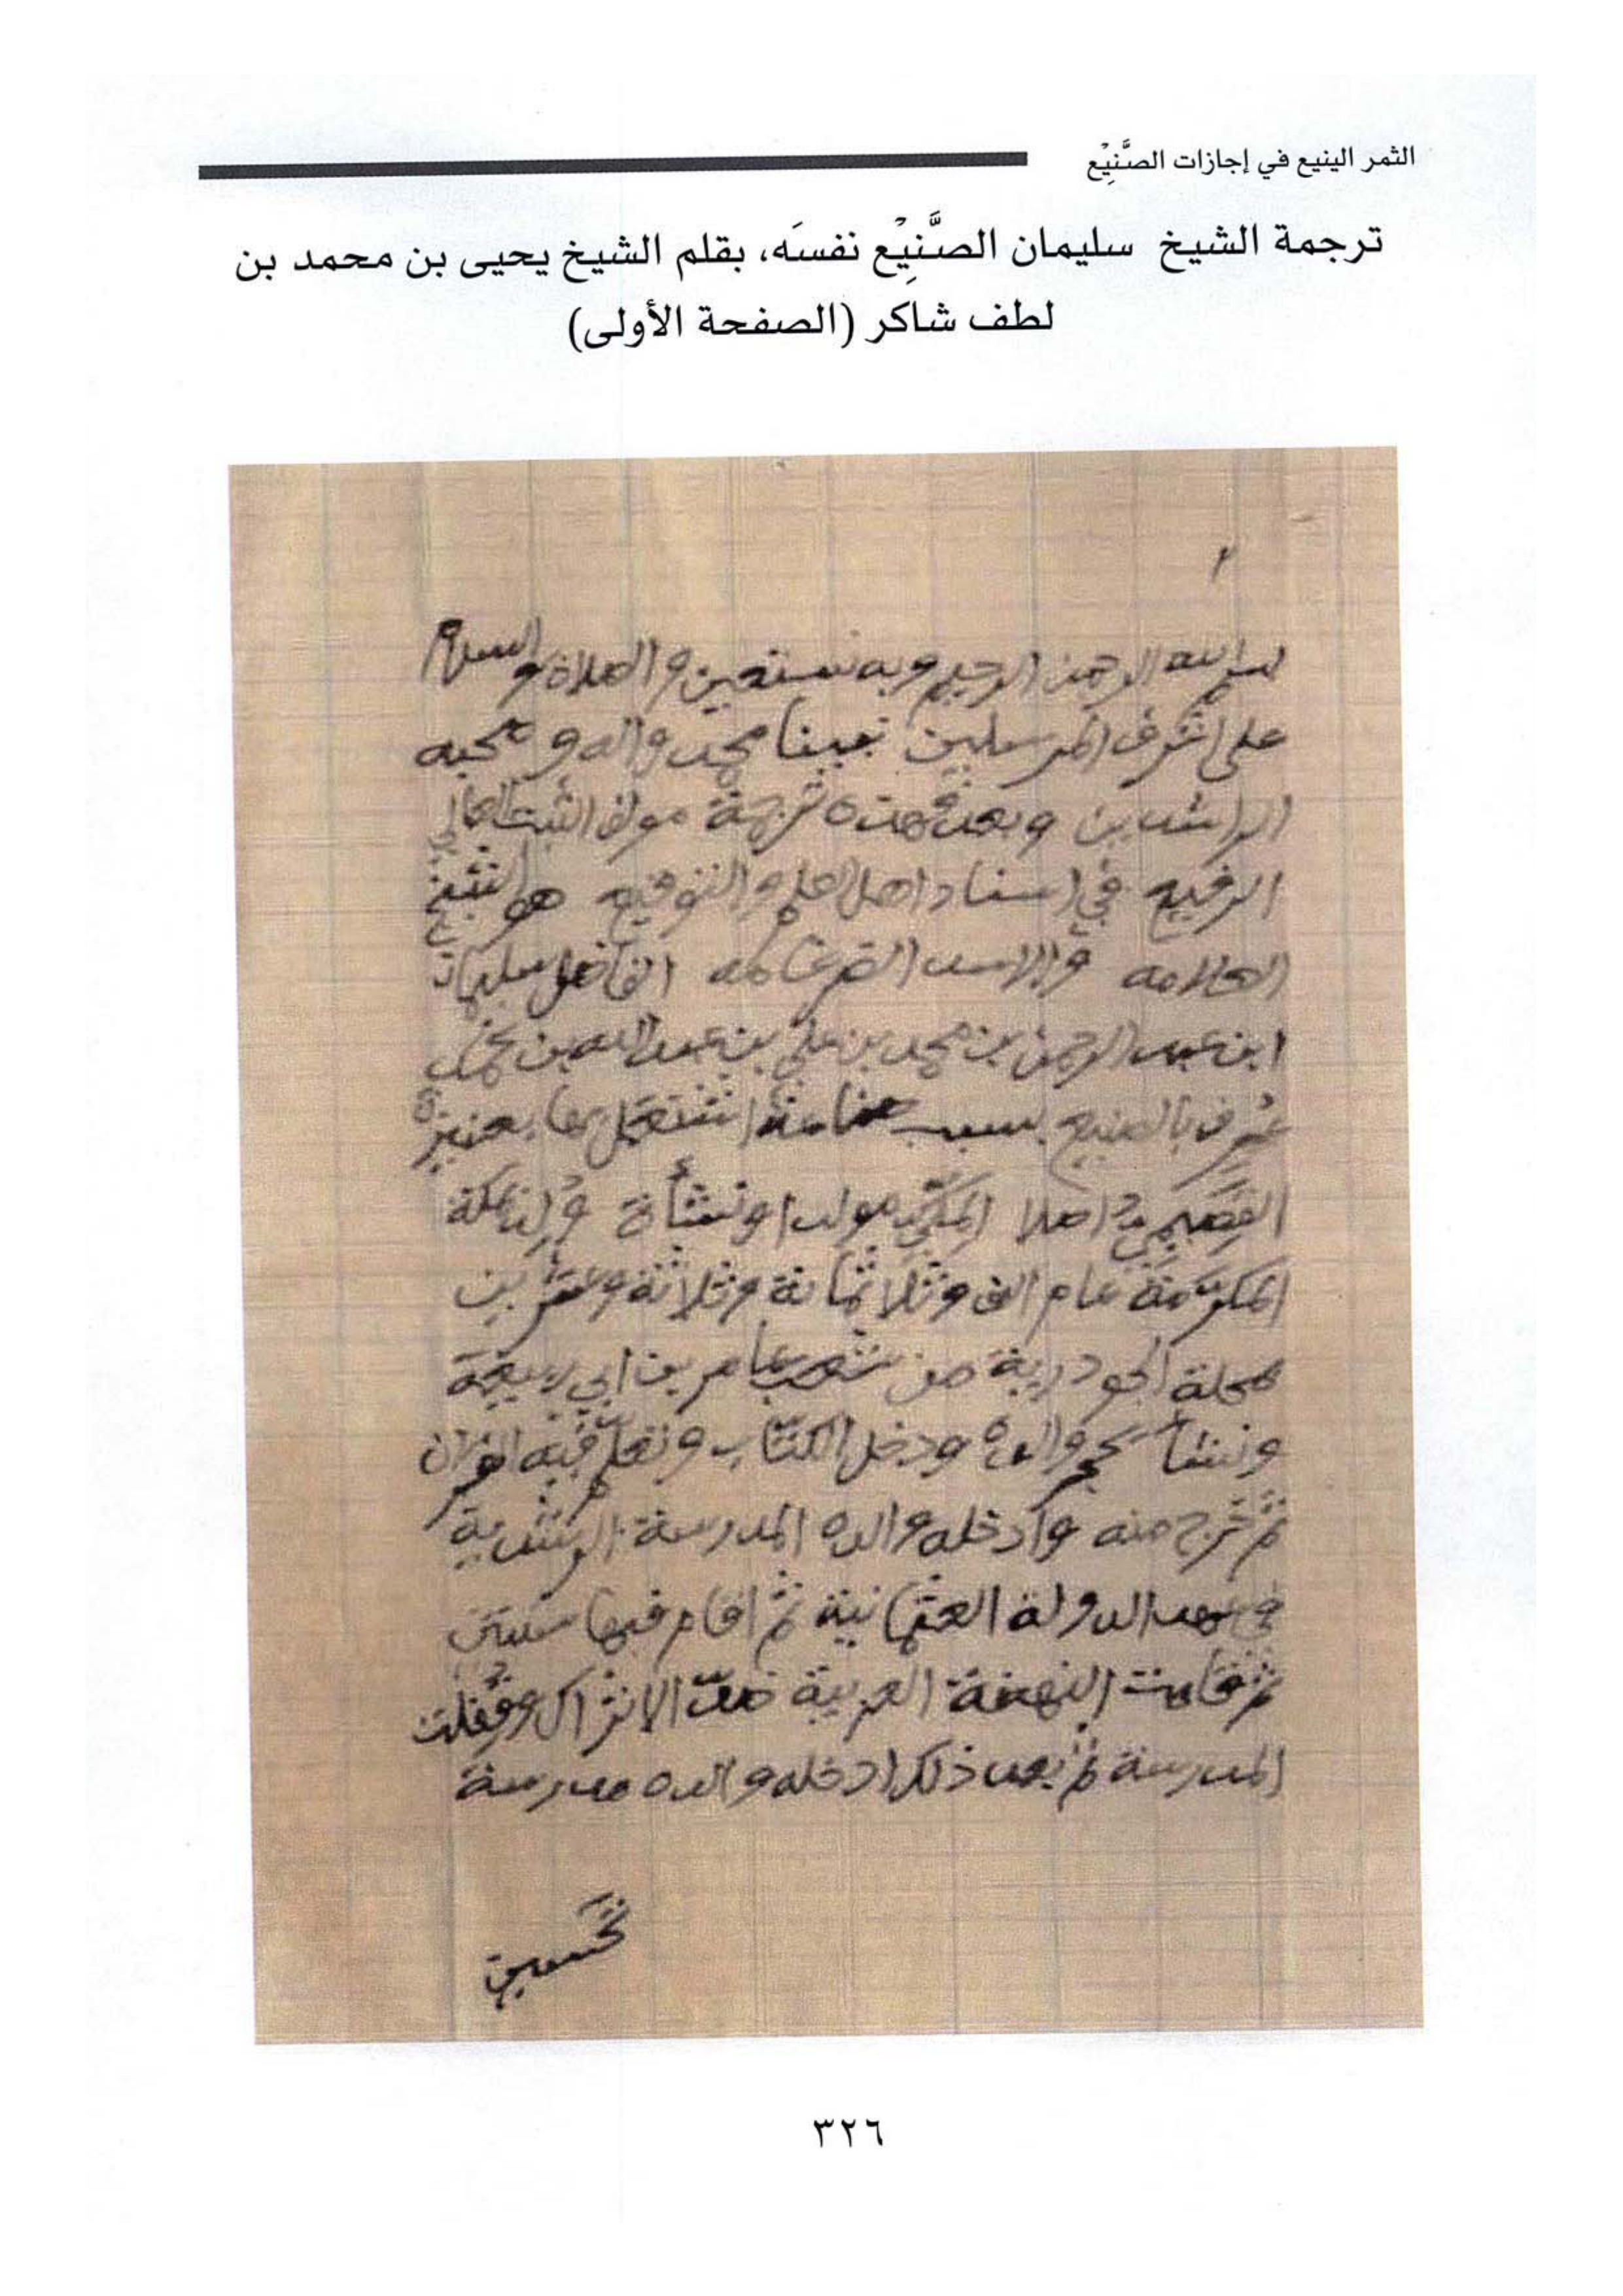 الثمر الينيع في إجازات الصَّنِيْع
ترجمة الشيخ سليمان الصَّنِيْع نفسَه، بقلم الشيخ يحيى بن محمد بن
لطف شاكر (الصفحة الأولى)
٢
بسم الله الرحمن الرحيم وبه نستعين والصلاة والسلام
على اشرف المرسلين نبينا محمد واله وصحبه
الراشدين وبعد فهذه ترجمة مولف الثبت العالي
الرفيع في اسناد اهل العلم و هو الشيخ
العلامه والاسد الضرغامه الفاضل سليمان
ابن عبد الرحمن بن محمد بن علي بن عبد الله بن حمد
عُرف بالصنيع بسبب اشتغل بها بعنيزة
القصيمي اصلا المكي مولدا ونشأة وُلِد بمكة
المكرّمة عام الف وثلاثمائة وثلاثة وعشرين
محلة الجودرية من شعب عامر بن ابي ربيعة
ونشأ بحجر والده ودخل الكتّاب وتعلّم فيه القران
ثم خرج منه وأدخله والده المدرسة الرشدية
في عهد الدولة العثمانية ثم اقام فيها سنتين
ثم قامت النهضة العربية ضدّ الاتراك وقُفلت
المدرسة ثم بعد ذلك ادخله والده مدرسة
تحسين
٣٢٦